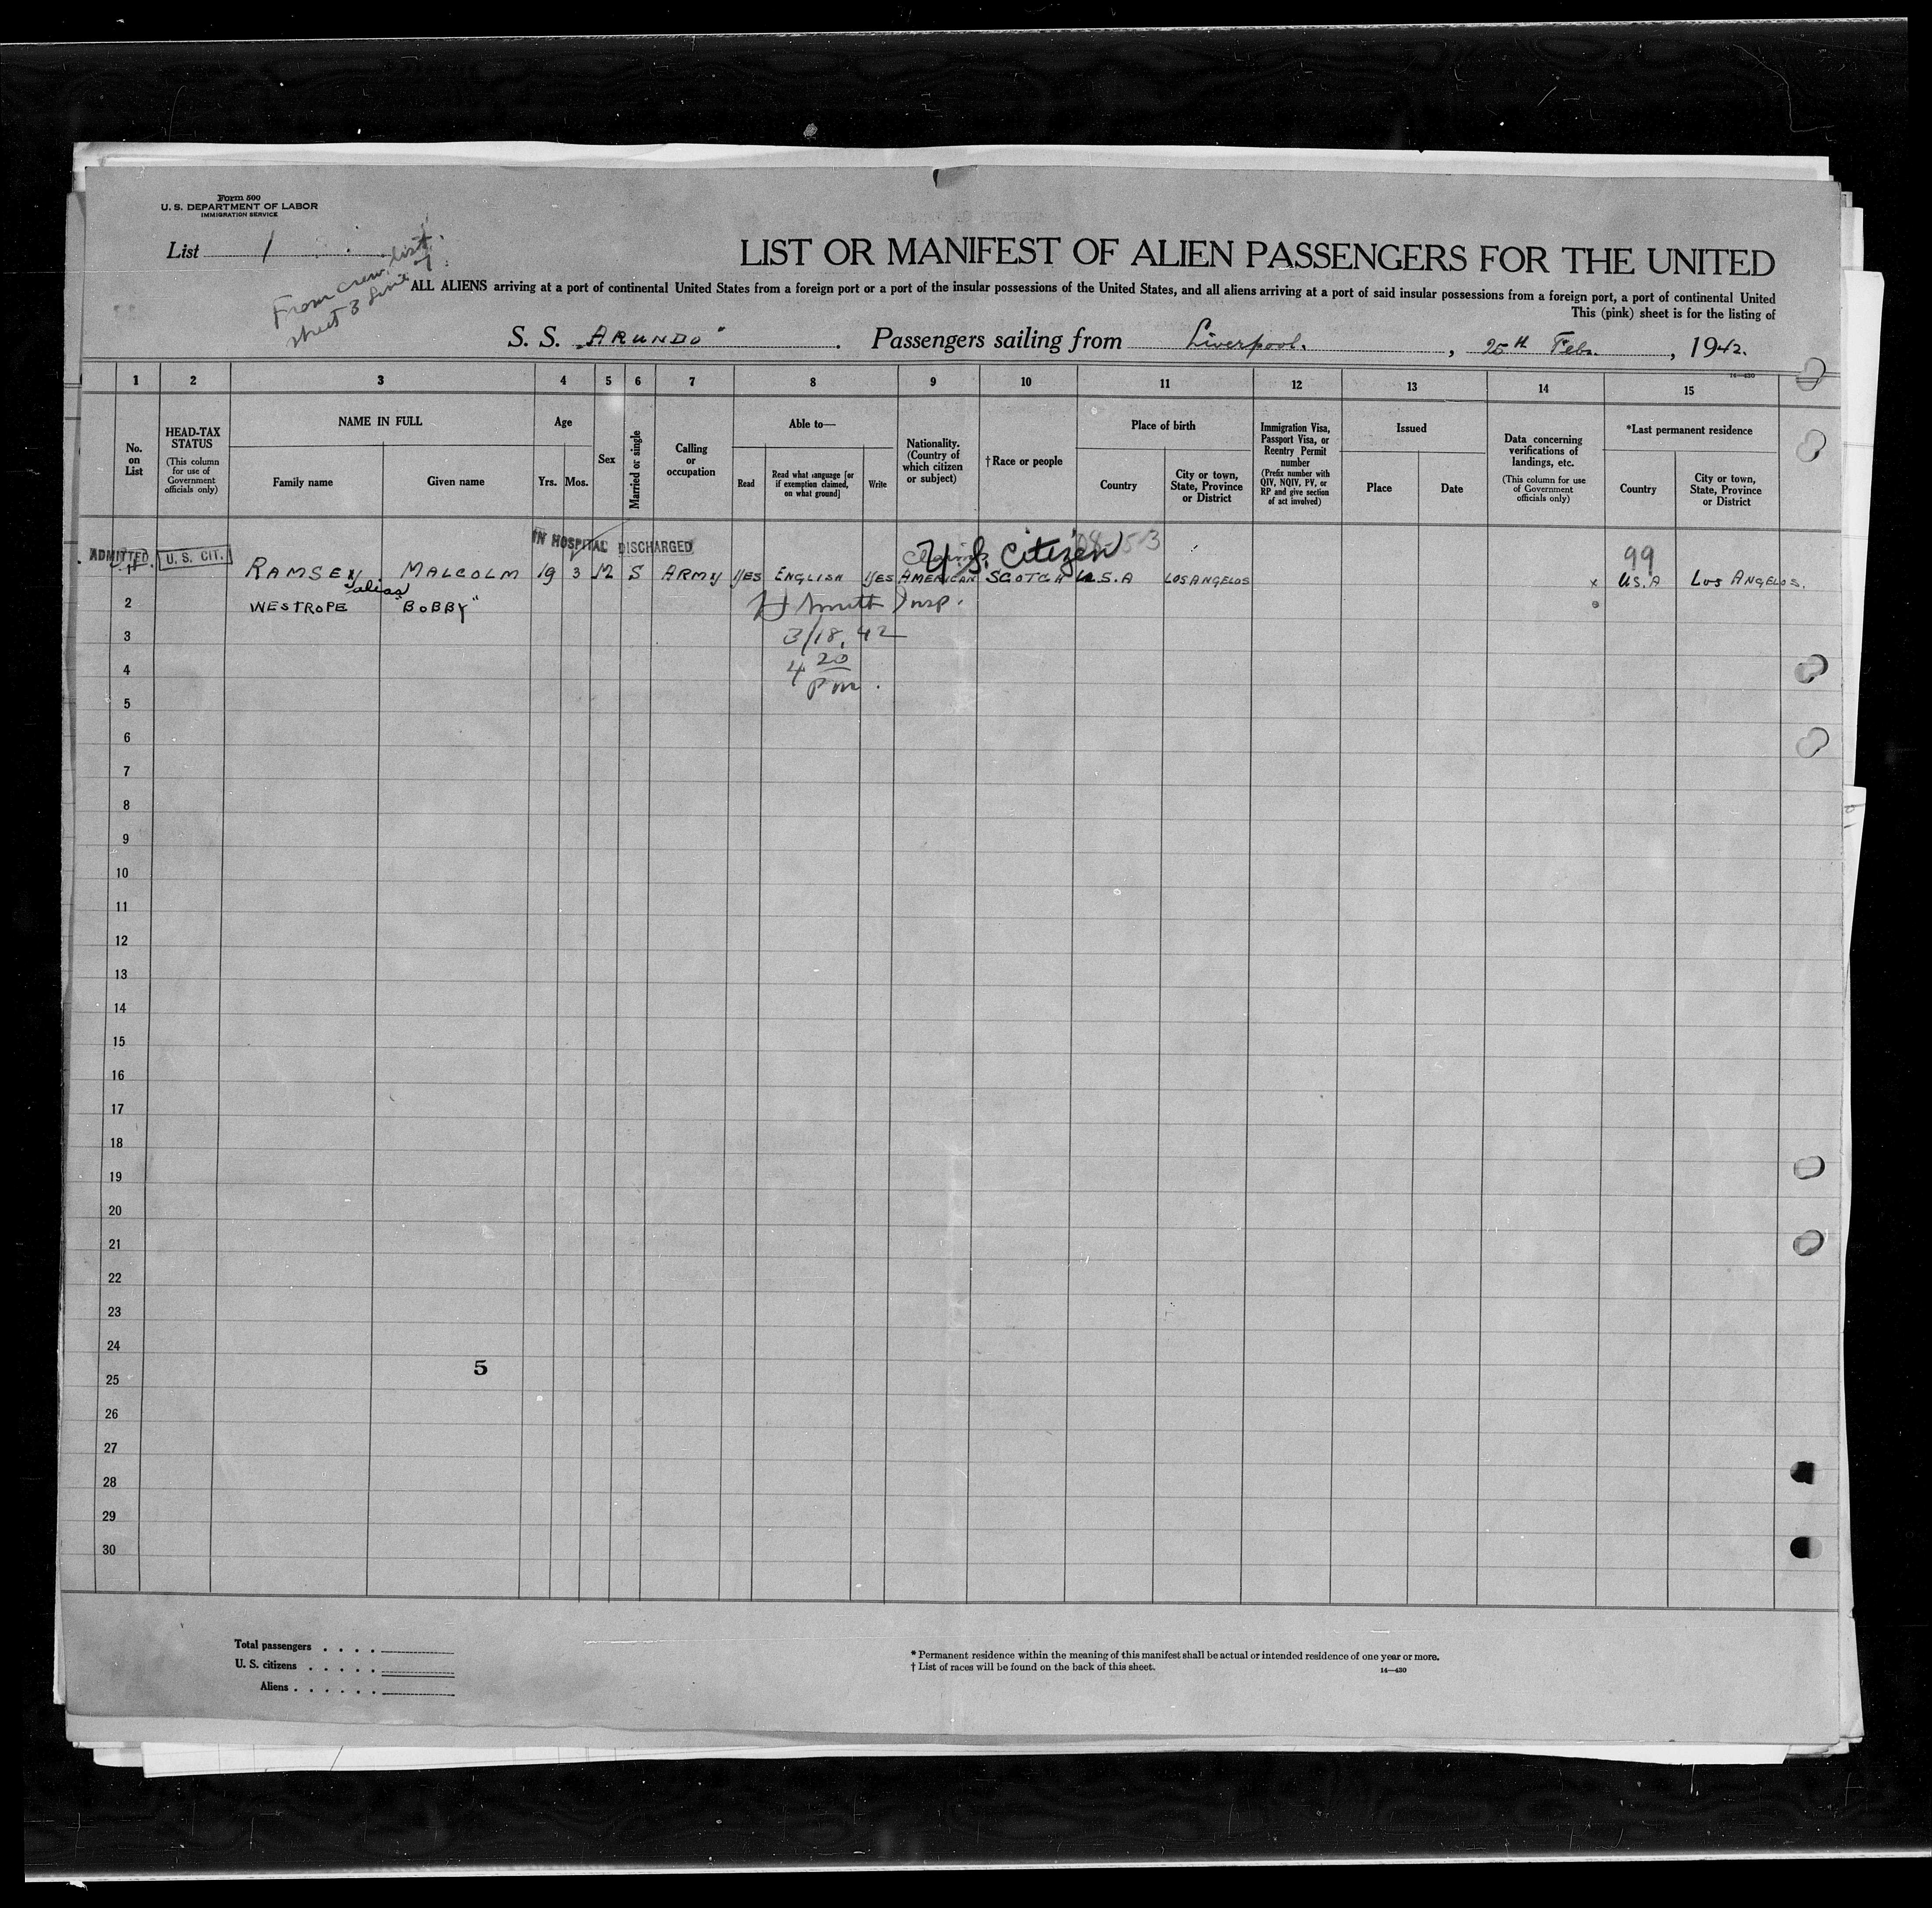 Form 500
U. S. DEPARTMENT OF LABOR
IMMIGRATION SERVICE
List 1
From crew list
sheet 3 line 7
LIST OR MANIFEST OF ALIEN PASSENGERS FOR THE UNITED
ALL ALIENS arriving at a port of continental United States from a foreign port or a port of the insular possessions of the United States, and all aliens arriving at a port of said insular possessions from a foreign port, a port of continental United
This (pink) sheet is for the listing of
S. S. "ARUNDO" . Passengers sailing from Liverpool. , 25th Feb. , 1942.
14—430
1 2 3 4 5 6 7 8 9 10 11 12 13 14 15
No. on List
HEAD-TAX STATUS
(This column for use of Government officials only)
NAME IN FULL
Family name Given name
Age
Yrs. Mos.
Sex
Married or single
Calling or occupation
Able to—
Read
Read what language [or if exemption claimed, on what ground]
Write
Nationality. (Country of which citizen or subject)
†Race or people
Place of birth
Country
City or town, State, Province or District
Immigration Visa, Passport Visa, or Reentry Permit number
(Prefix number with QIV, NQIV, PV, or RP and give section of act involved)
Issued
Place Date
Data concerning verifications of landings, etc.
(This column for use of Government officials only)
*Last permanent residence
Country
City or town, State, Province or District
IN HOSPITAL DISCHARGED
U.S. Citizen
99
ADMITTED U. S. CIT.
1 RAMSEY MALCOLM 19 3 M S ARMY YES ENGLISH YES AMERICAN SCOTCH U.S.A LOS ANGELOS x U.S.A LOS ANGELOS.
alias
2 WESTROPE "BOBBY" H Smith Insp.
3 3/18.42
4 4 20
pm.
5
6
7
8
9
10
11
12
13
14
15
16
17
18
19
20
21
22
23
24
5
25
26
27
28
29
30
Total passengers . . . .
U. S. citizens . . . . .
Aliens . . . . . .
* Permanent residence within the meaning of this manifest shall be actual or intended residence of one year or more.
† List of races will be found on the back of this sheet.
14—430